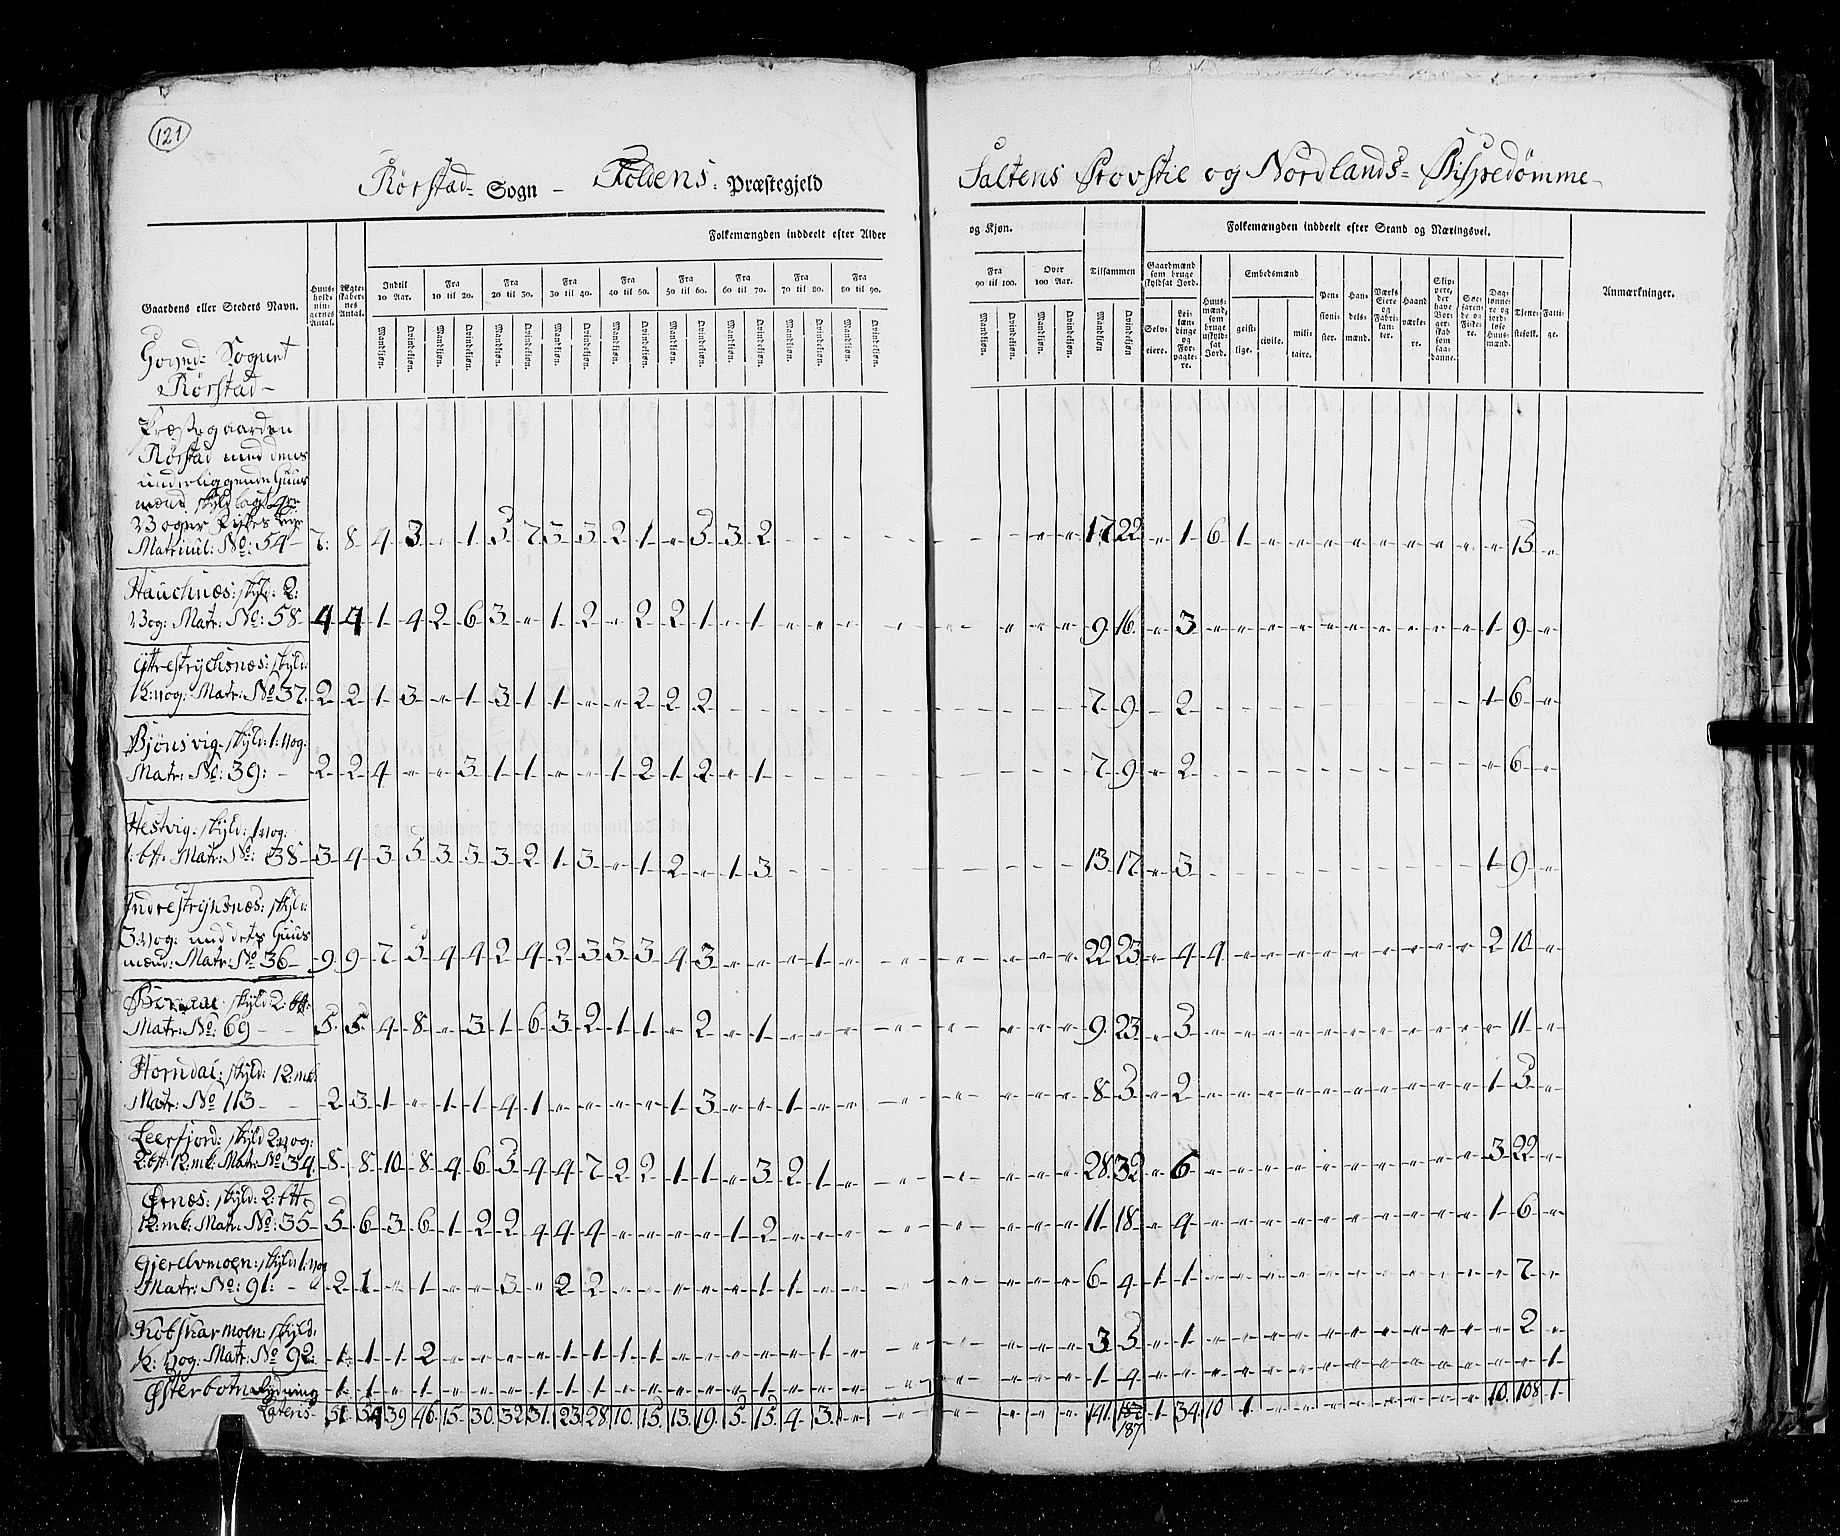 121
Rörstad Sogn – Foldens: Præstegjeld
Saltens Provstie og Nordlands Bispedömme
Folkemængden inddeelt efter Alder
og Kjøn.
Folkemængden inddeelt efter Stand og Næringsvei.
Gaardens eller Stedets Navn.
Huus-holdnin-gernes Antal.
Ægte-skaber-nes Antal.
Indtil 10 Aar.
Fra 10 til 20.
Fra 20 til 30.
Fra 30 til 40.
Fra 40 til 50.
Fra 50 til 60.
Fra 60 til 70.
Fra 70 til 80.
Fra 80 til 90.
Fra 90 til 100.
Over 100 Aar.
Tilsammen
Mandkjøn. Qvindekjøn.
Gaardmænd som bruge skyldsat Jord.
Selv-eiere.
Lei-læn-dinge og For-pagte-re.
Huus-mænd, som bruge uskyld-sat Jord.
Embedsmænd
geist-lige.
civile.
mili-taire.
Pen-sioni-ster.
Han-dels-mænd.
Værks Eiere og Fabri-kan-ter.
Haand værke-re.
Skip-pere, der have Bor-ger-skab som saa-danne.
Søe-faren-de og Fiske-re.
Dag-lønne-re og jord-løse Huus-mænd.
Tjene-stefolk.
Fatti-ge.
Anmærkninger.
Hoved: Sognet
Rörstad
Præstegaarden
Rörstad med dens
underliggende Huus
mænd
Matricul: No: 54 7. 8 4 3 " 1 5 7 3 3 2 1 " 5 3 2 17 22 " 1 6 1 15 "
Hauchnæs: skyld: 2:
Vog: Matr: No: 58 4 4 1 4 2 6 3 " 1 2 " 2 2 1 " 1 9 16 " 3 1 9 "
Yttrestrychsnæs: skyld:
Matr: No 37. 2 2 1 3 " 1 3 1 1 " " 2 2 2 7 9 2 1 6 "
Bjönsvig: skyld: 1: Vog:
Matr: No: 39: 2 2 4 " " 3 1 1 " " 1 2 1 2 " 1 7 9 " 2 " 6 "
Hestvig: skyld: 1 Vog:
Matr: No: 38 3 4 3 5 3 3 3 2 1 3 " 1 2 " 1 3 13 17 " 3 1 9 "
Indrestrynsnæs: skyld:
3 Vog: med dets Huus
mænd: Matr: No 36 9 9 7 5 4 4 2 4 2 3 3 3 4 3 " " " 1 22 23 " 4 4 2 10 "
skyld 2: ℔:
Matr: No: 69 5 5 4 8 " 3 1 6 3 2 1 1 " 2 " 1 9 23 " 3 " 11 "
Horndal: skyld: 12: mk:
Matr: No 113 2 3 1 " 1 1 4 1 " " " " 1 3 " " 1 " 8 5 " 2 1 5 "
Leerfjord: skyld 2 Vog:
2: ℔: 12. mk: Matr: No 34. 8 8 10 8 4 6 5 4 4 7 2 2 1 1 " 3 2 1 28 32 " 6 3 22 "
Ørnæs: skyld: 2: ℔:
12: mk: Matr: No: 35 5 6 3 6 1 2 2 4 4 4 " " " " 1 2 11 18 " 4 1 6 "
Gjerelvmoen: skyld: 1: Vog
Matr: No: 91: 2 1 " 1 " " 3 " 2 2 " " " " " 1 1 " 6 4 1 1 7 "
Kobskarmoen: skyld:
½: Vog: Matr: No 92: 1 1 1 2 " " " " 1 1 1 1 " " " " " 1 3 5 " 1 2 "
Østerbotn Rydning 1 1 " 1 " " " 1 1 1 " " " " " 1 1 4 1
Lateris 51. 54 39. 46. 15. 30. 32. 31. 23. 28. 10. 15. 13. 19. 5. 15. 4. 3. 141. 187 1 34. 10 1 10. 108. 1
187